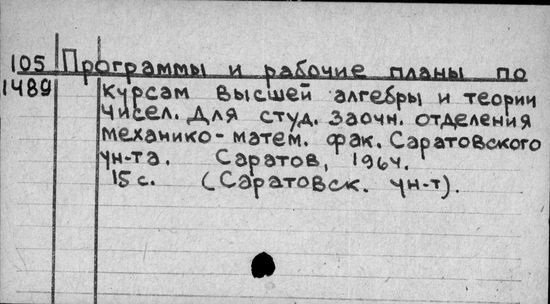 105 Программы и рабочие планы по
1489 курсам высшей алгебры и теории
чисел. Для студ. заочн. отделения
механико-матем. фак. Саратовского
ун-та. Саратов, 1964.
15 с. (Саратовск. ун-т).